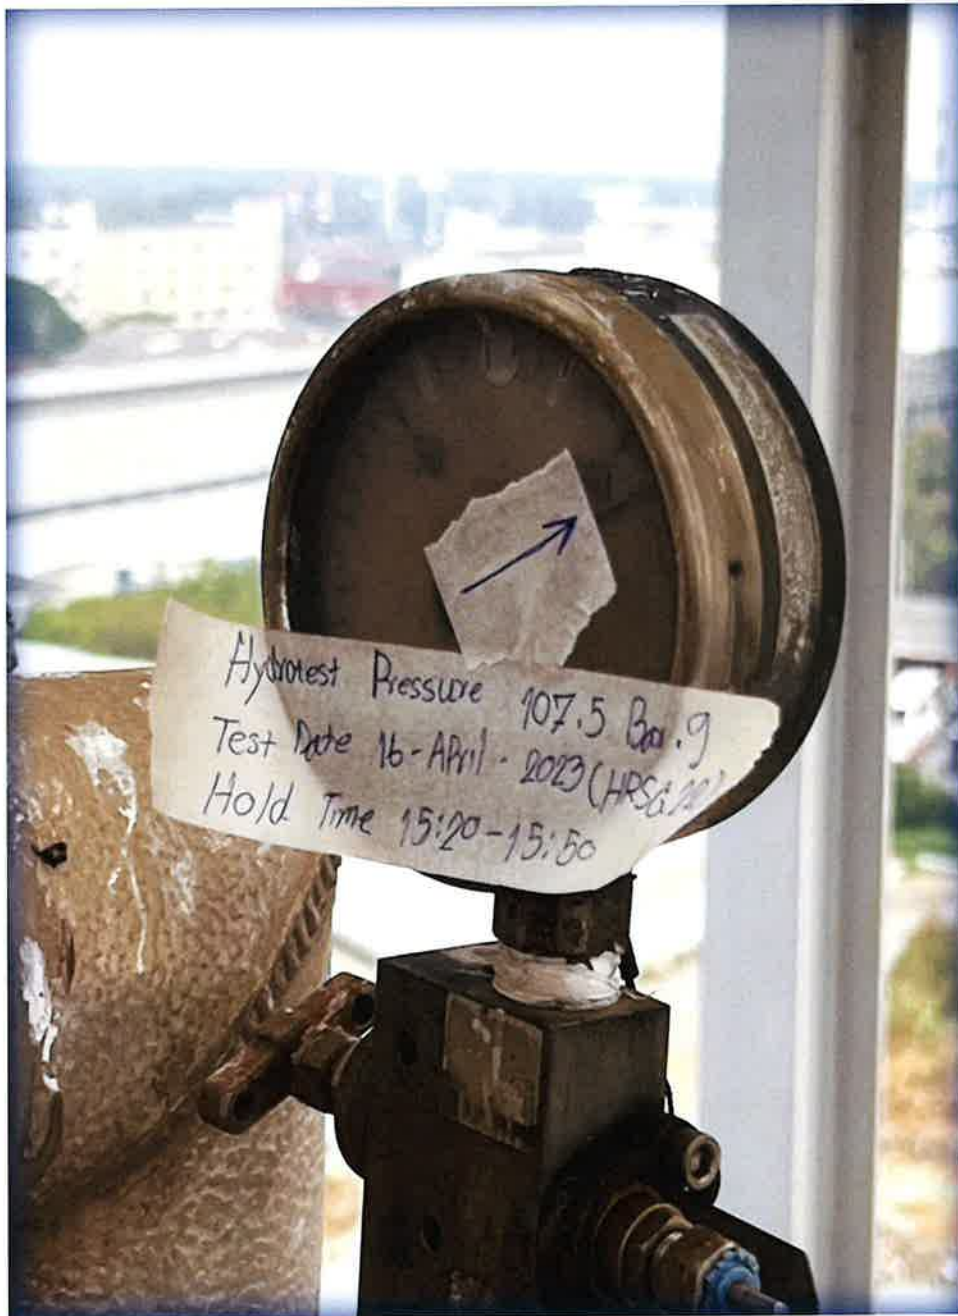 Hydrotest Pressure 107.5 Bar.g
Test Date 16-April-2023 (HRSG
Hold Time 15:20-15:50